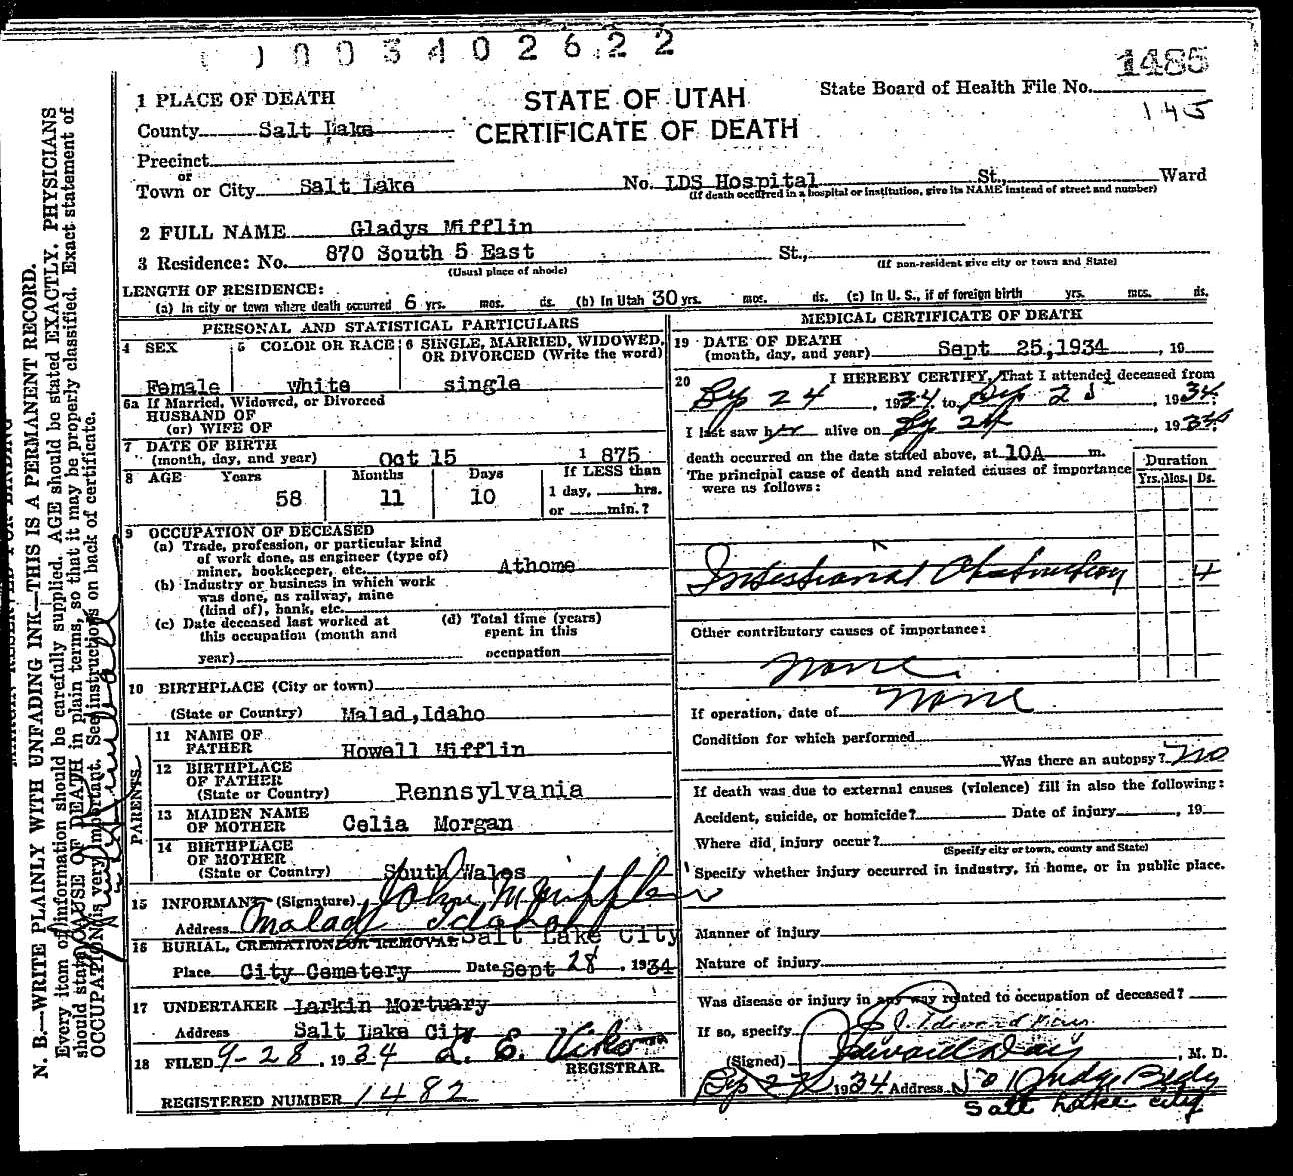 0 0 3 4 0 2 6 2 2
1485
1 PLACE OF DEATH
STATE OF UTAH
State Board of Health File No.
145
County Salt Lake
CERTIFICATE OF DEATH
Precinct
or
Town or City Salt Lake No. LDS Hospital St., Ward
(If death occurred in a hospital or institution, give its NAME instead of street and number)
2 FULL NAME Gladys Mifflin
3 Residence: No. 870 South 5 East St.,
(Usual place of abode) (If non-resident give city or town and State)
LENGTH OF RESIDENCE:
(a) In city or town where death occurred 6 yrs. mos. ds. (b) In Utah 30 yrs. mos. ds. (c) In U. S., if of foreign birth yrs. mos. ds.
PERSONAL AND STATISTICAL PARTICULARS
4 SEX
Female
5 COLOR OR RACE
White
6 SINGLE, MARRIED, WIDOWED,
OR DIVORCED (Write the word)
single
6a If Married, Widowed, or Divorced
HUSBAND OF
(or) WIFE OF
7 DATE OF BIRTH
(month, day, and year) Oct 15 1 875
8 AGE Years Months Days If LESS than
58 11 10 1 day, hrs.
or min.?
9 OCCUPATION OF DECEASED
(a) Trade, profession, or particular kind
of work done, as engineer (type of)
miner, bookkeeper, etc. Athome
(b) Industry or business in which work
was done, as railway, mine
(kind of), bank, etc.
(c) Date deceased last worked at
this occupation (month and
year)
(d) Total time (years)
spent in this
occupation
10 BIRTHPLACE (City or town)
(State or Country) Malad, Idaho
PARENTS
11 NAME OF
FATHER Howell Mifflin
12 BIRTHPLACE
OF FATHER
(State or Country) Pennsylvania
13 MAIDEN NAME
OF MOTHER Celia Morgan
14 BIRTHPLACE
OF MOTHER
(State or Country) South Wales
15 INFORMANT (Signature) John M. Mifflin
Address Malad Idaho
16 BURIAL, CREMATION OR REMOVAL Salt Lake City
Place City Cemetery Date Sept 28, 1934
17 UNDERTAKER Larkin Mortuary
Address Salt Lake City
18 FILED 9-28, 1934
REGISTRAR.
REGISTERED NUMBER 1482
MEDICAL CERTIFICATE OF DEATH
19 DATE OF DEATH
(month, day, and year) Sept 25,1934, 19
20 I HEREBY CERTIFY, That I attended deceased from
Sep 24, 1934 to Sep 25, 1934.
I last saw her alive on Sep 24, 1934
death occurred on the date stated above, at 10A m.
The principal cause of death and related causes of importance
were as follows:
Duration
Yrs. Mos. Ds.
Intestional Obstruction 4
Other contributory causes of importance:
None
If operation, date of None
Condition for which performed
Was there an autopsy? No
If death was due to external causes (violence) fill in also the following:
Accident, suicide, or homicide? Date of injury , 19
Where did injury occur?
(Specify city or town, county and State)
Specify whether injury occurred in industry, in home, or in public place.
Manner of injury
Nature of injury
Was disease or injury in any way related to occupation of deceased?
If so, specify
(Signed) , M. D.
Sep 27 1934 Address 501 Judge Bldg
Salt Lake City
N. B.—WRITE PLAINLY WITH UNFADING INK—THIS IS A PERMANENT RECORD.
Every item of information should be carefully supplied. AGE should be stated EXACTLY. PHYSICIANS
should state CAUSE OF DEATH in plain terms, so that it may be properly classified. Exact statement of
OCCUPATION is very important. See instructions on back of certificate.